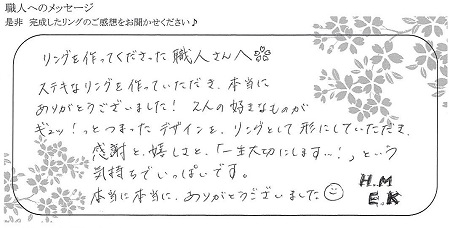 職人へのメッセージ
是非 完成したリングのご感想をお聞かせください♪
リングを作ってくださった職人さんへ
ステキなリングを作っていただき、本当に
ありがとうございました！ 2人の好きなものが
ギュッ！っとつまったデザインを、リングとして形にしていただき、
感謝と、嬉しさと、「一生大切にします…！」という
気持ちでいっぱいです。
本当に本当に、ありがとうございました
H.M
E.K